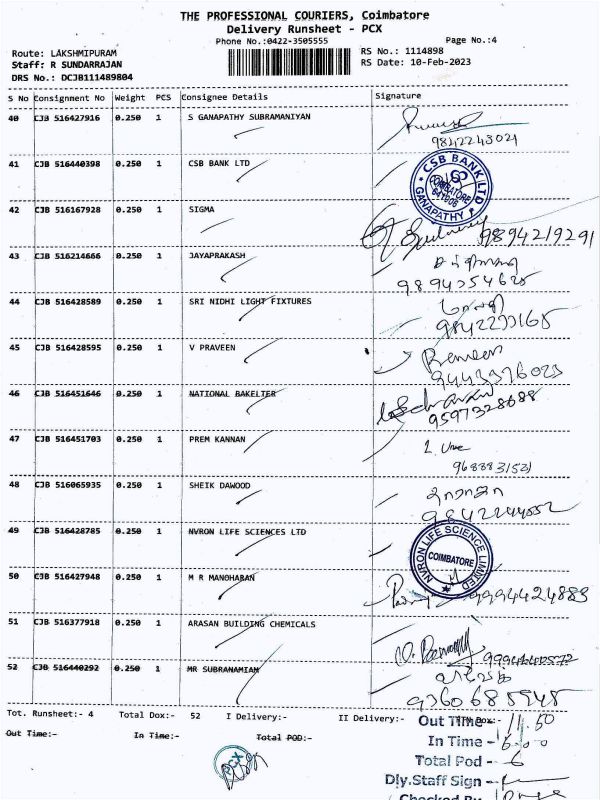 THE PROFESSIONAL COURIERS, Coimbatore
Delivery Runsheet - PCX
Phone No.:0422-3505555 Page No.:4
Route: LAKSHMIPURAM RS No.: 1114898
Staff: R SUNDARRAJAN RS Date: 10-Feb-2023
DRS No.: DCJB111489804
S No Consignment No Weight PCS Consignee Details Signature
40 CJB 516427916 0.250 1 S GANAPATHY SUBRAMANIYAN
9842243021
41 CJB 516440398 0.250 1 CSB BANK LTD
CSB BANK LTD COIMBATORE GANAPATHY
42 CJB 516167928 0.250 1 SIGMA
9894219291
43 CJB 516214666 0.250 1 JAYAPRAKASH
44 CJB 516428589 0.250 1 SRI NIDHI LIGHT FIXTURES
45 CJB 516428595 0.250 1 V PRAVEEN
Praveen
46 CJB 516451646 0.250 1 NATIONAL BAKELTER
9597328688
47 CJB 516451703 0.250 1 PREM KANNAN
48 CJB 516065935 1 SHEIK DAWOOD
49 CJB 516428785 0.250 1 NVRON LIFE SCIENCES LTD
NVRON LIFE SCIENCE LIMITED COIMBATORE
50 CJB 516427948 0.250 1 M R MANOHARAN
9994424883
51 CJB 516377918 0.250 1 ARASAN BUILDING CHEMICALS
52 CJB 516440292 0.250 1 MR SUBRANAMIAM
9360685945
Tot. Runsheet:- 4 Total Dox:- 52 I Delivery:- II Delivery:-
Out Time:- In Time:- Total POD:-
Out Time - 11.50
In Time -
Total Pod -
PCX
Dly.Staff Sign -
Checked By